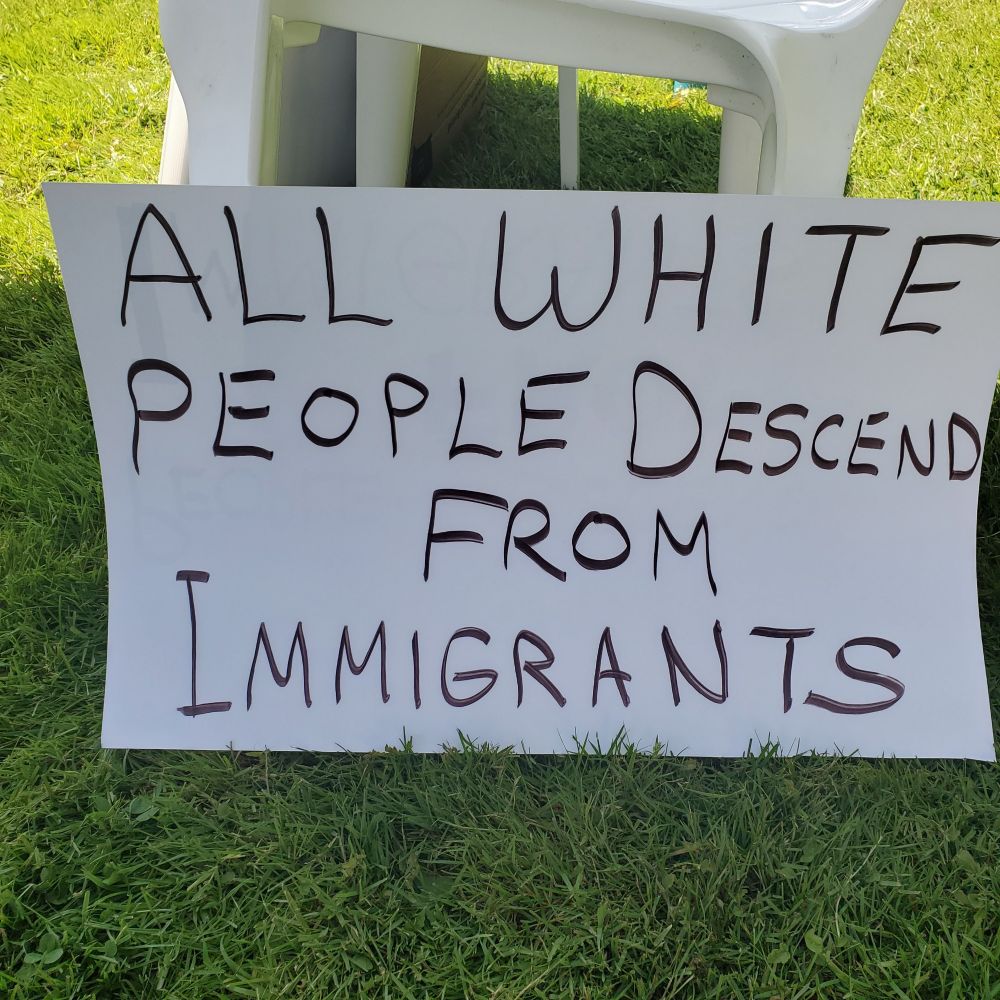 ALL WHITE
PEOPLE DESCEND
FROM
IMMIGRANTS